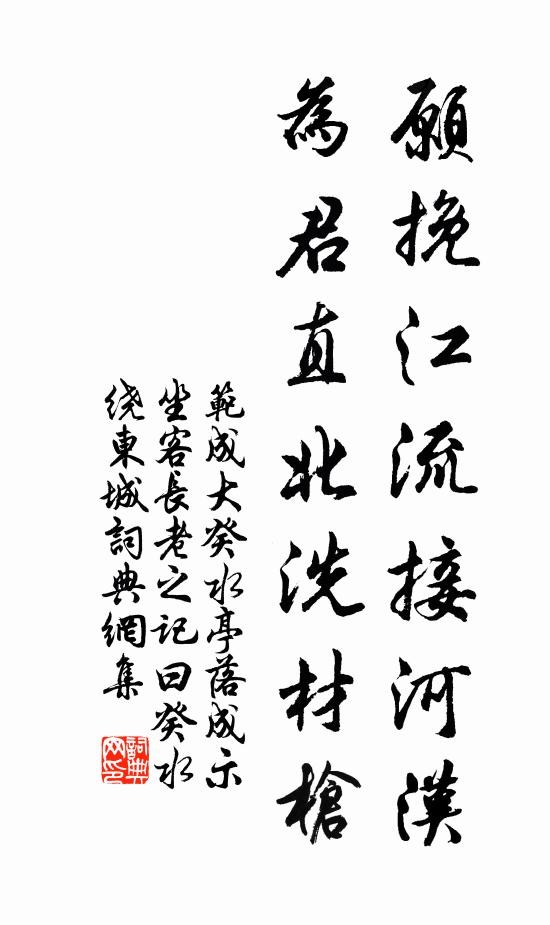 願挽江流接河漢
為君直北洗材槍
範成大癸水亭落成示
坐客長老之記曰癸水
绕東城詞典網集
詞典網印